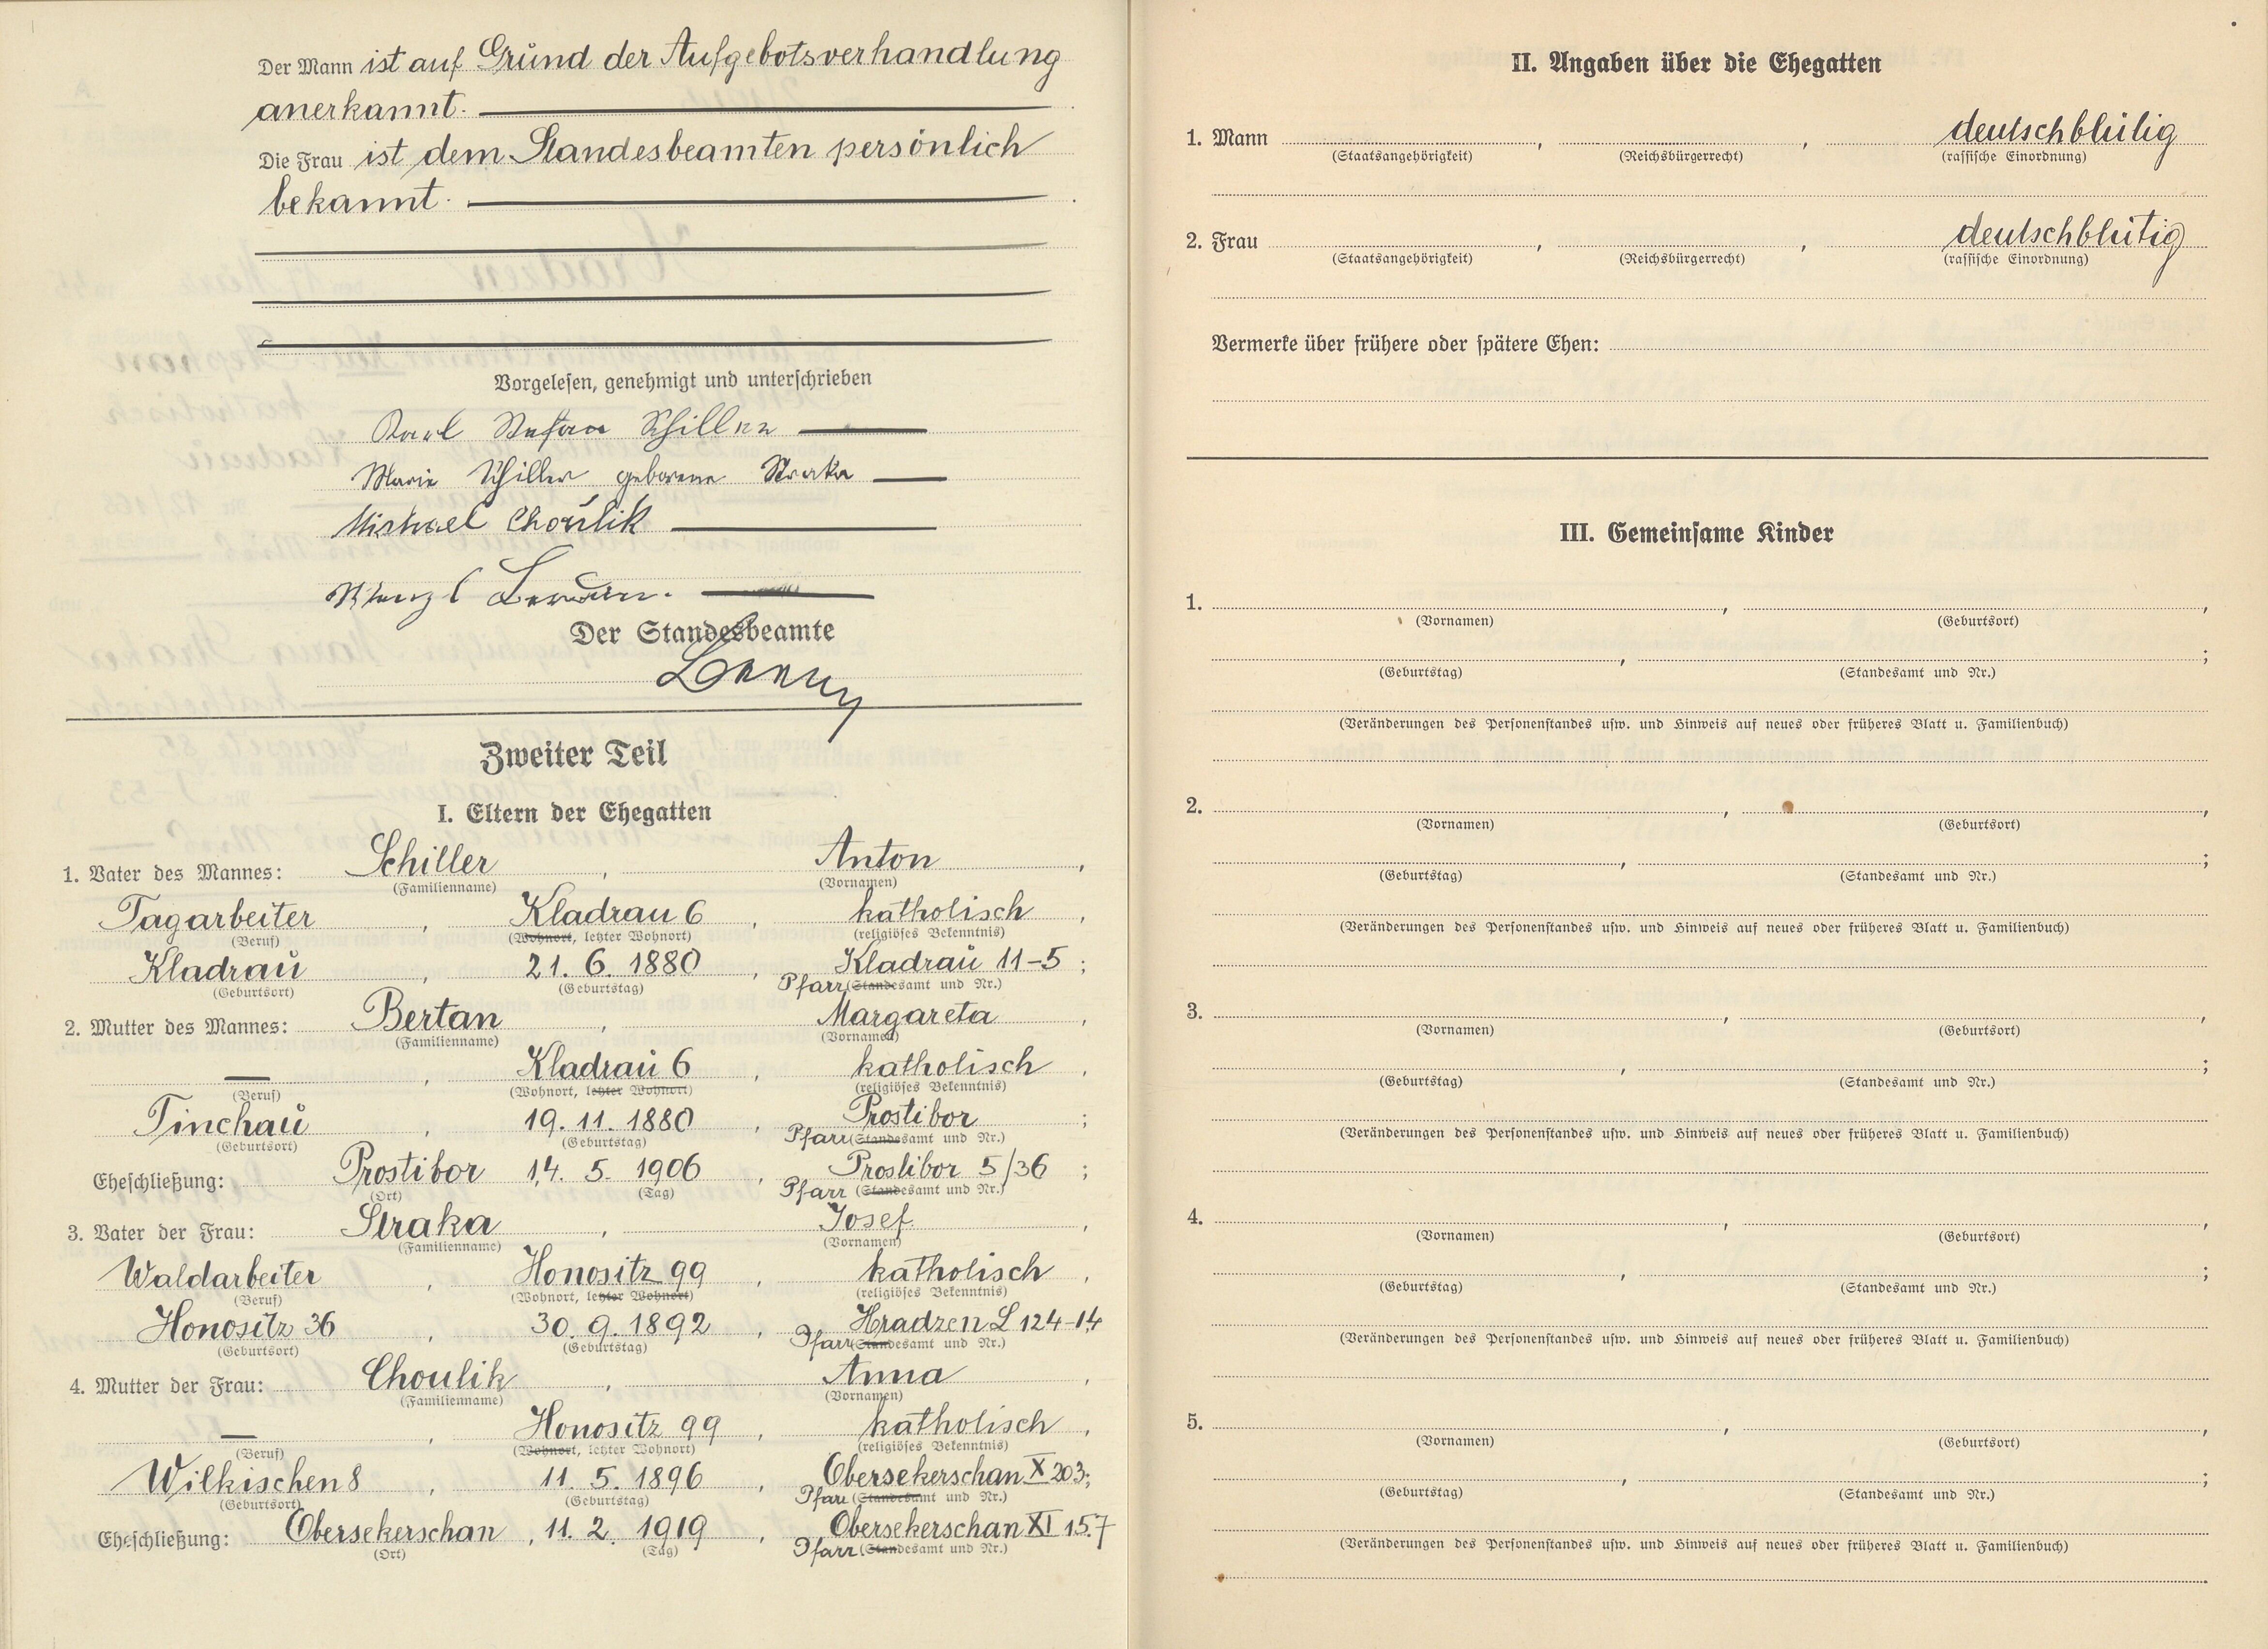 Der Mann ist auf Grund der Aufgebotsverhandlung
anerkannt.
Die Frau ist dem Standesbeamten persönlich
bekannt.
Vorgelesen, genehmigt und unterschrieben
Karl Stefan Schiller
Marie Schiller geborene Straka
Michael Choulik
Wenzl
Der Standesbeamte
Zweiter Teil
I. Eltern der Ehegatten
1. Vater des Mannes: Schiller, Anton,
(Familienname) (Vornamen)
Tagarbeiter, Kladrau 6, katholisch,
(Beruf) (Wohnort, letzter Wohnort) (religiöses Bekenntnis)
Kladrau, 21. 6. 1880, Kladrau 11-5;
(Geburtsort) (Geburtstag) Pfarr (Standesamt und Nr.)
2. Mutter des Mannes: Bertan, Margareta,
(Familienname) (Vornamen)
—, Kladrau 6, katholisch,
(Beruf) (Wohnort, letzter Wohnort) (religiöses Bekenntnis)
Tinchau, 19. 11. 1880, Prostibor;
(Geburtsort) (Geburtstag) Pfarr (Standesamt und Nr.)
Eheschließung: Prostibor, 14. 5. 1906, Prostibor 5/36;
(Ort) (Tag) Pfarr (Standesamt und Nr.)
3. Vater der Frau: Straka, Josef,
(Familienname) (Vornamen)
Waldarbeiter, Honositz 99, katholisch,
(Beruf) (Wohnort, letzter Wohnort) (religiöses Bekenntnis)
Honositz 36, 30. 9. 1892, Hradzen L 124-14
(Geburtsort) (Geburtstag) Pfarr (Standesamt und Nr.)
4. Mutter der Frau: Choulik, Anna,
(Familienname) (Vornamen)
—, Honositz 99, katholisch,
(Beruf) (Wohnort, letzter Wohnort) (religiöses Bekenntnis)
Wilkischen 8, 11. 5. 1896, Obersekerschan X 203;
(Geburtsort) (Geburtstag) Pfarr (Standesamt und Nr.)
Eheschließung: Obersekerschan, 11. 2. 1919, Obersekerschan XI 157
(Ort) (Tag) Pfarr (Standesamt und Nr.)
II. Angaben über die Ehegatten
1. Mann , , deutschblütig
(Staatsangehörigkeit) (Reichsbürgerrecht) (rassische Einordnung)
2. Frau , , deutschblütig
(Staatsangehörigkeit) (Reichsbürgerrecht) (rassische Einordnung)
Vermerke über frühere oder spätere Ehen:
III. Gemeinsame Kinder
1. , ,
(Vornamen) (Geburtsort)
, ;
(Geburtstag) (Standesamt und Nr.)
(Veränderungen des Personenstandes usw. und Hinweis auf neues oder früheres Blatt u. Familienbuch)
2. , ,
(Vornamen) (Geburtsort)
, ;
(Geburtstag) (Standesamt und Nr.)
(Veränderungen des Personenstandes usw. und Hinweis auf neues oder früheres Blatt u. Familienbuch)
3. , ,
(Vornamen) (Geburtsort)
, ;
(Geburtstag) (Standesamt und Nr.)
(Veränderungen des Personenstandes usw. und Hinweis auf neues oder früheres Blatt u. Familienbuch)
4. , ,
(Vornamen) (Geburtsort)
, ;
(Geburtstag) (Standesamt und Nr.)
(Veränderungen des Personenstandes usw. und Hinweis auf neues oder früheres Blatt u. Familienbuch)
5. , ,
(Vornamen) (Geburtsort)
, ;
(Geburtstag) (Standesamt und Nr.)
(Veränderungen des Personenstandes usw. und Hinweis auf neues oder früheres Blatt u. Familienbuch)